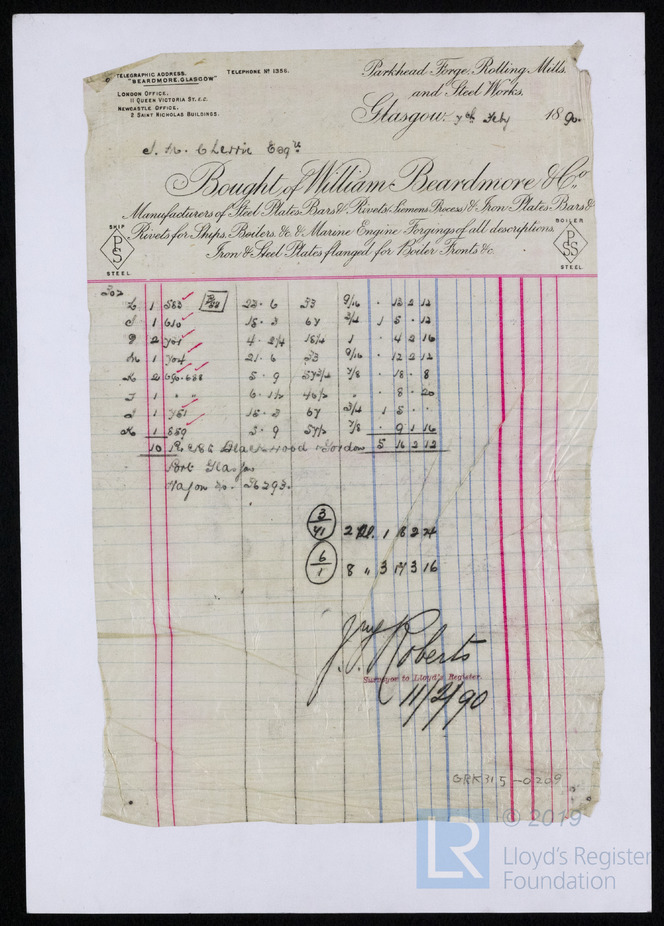 TELEGRAPHIC ADDRESS.
"BEARDMORE, GLASGOW"
TELEPHONE Nº 1355.
LONDON OFFICE,
11 QUEEN VICTORIA ST. E.C.
NEWCASTLE OFFICE,
2 SAINT NICHOLAS BUILDINGS.
Parkhead Forge, Rolling Mills,
and Steel Works,
Glasgow, 7th Feby 1890.
Esqre
Bought of William Beardmore & Co.,
Manufacturers of Steel Plates Bars & Rivets (Siemens Process) & Iron Plates Bars &
Rivets for Ships, Boilers, &c. & Marine Engine Forgings of all descriptions,
Iron & Steel Plates flanged for Boiler Fronts &c.
SHIP
PS
STEEL
BOILER
PSS
STEEL
1 583 23 . 6 33 9/16 . 12 2 12
1 610 15 . 3 67 3/4 1 5 . 12
2 701 1 . 4 2 16
1 704 21 . 6 33 9/16 . 12 2 12
2 690.688 5 . 9 7/8 . 18 . 8
1 " " " . 8 . 20
1 751 15 . 3 67 3/4 1 5 . .
1 859 7/8 . 9 1 16
10 Blackwood & Gordon 5 16 2 12
Port Glasgow
Wagon No. 26293.
3/41 2 Pl. 1 18 2 24
6/1 8 " 3 17 3 16
Roberts
Surveyor to Lloyd's Register.
11/2/90
GRK315-0209
© 2019
LR
Lloyd's Register
Foundation